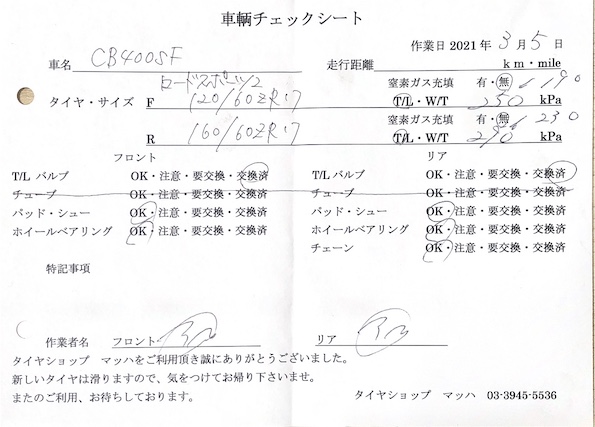 車輌チェックシート
作業日 2021 年 3 月 5 日
車名 CB400SF 走行距離 km・mile
ロードスポーツ/2 窒素ガス充填 有・無
タイヤ・サイズ F 120/60ZR17 T/L・W/T 250 kPa
窒素ガス充填 有・無 230
R 160/60ZR17 T/L・W/T 290 kPa
フロント リア
T/L バルブ OK・注意・要交換・交換済 T/L バルブ OK・注意・要交換・交換済
チューブ OK・注意・要交換・交換済 チューブ OK・注意・要交換・交換済
パッド・シュー OK・注意・要交換・交換済 パッド・シュー OK・注意・要交換・交換済
ホイールベアリング OK・注意・要交換・交換済 ホイールベアリング OK・注意・要交換・交換済
チェーン OK・注意・要交換・交換済
特記事項
作業者名 フロント リア
タイヤショップ マッハをご利用頂き誠にありがとうございました。
新しいタイヤは滑りますので、気をつけてお帰り下さいませ。
またのご利用、お待ちしております。 タイヤショップ マッハ 03-3945-5536